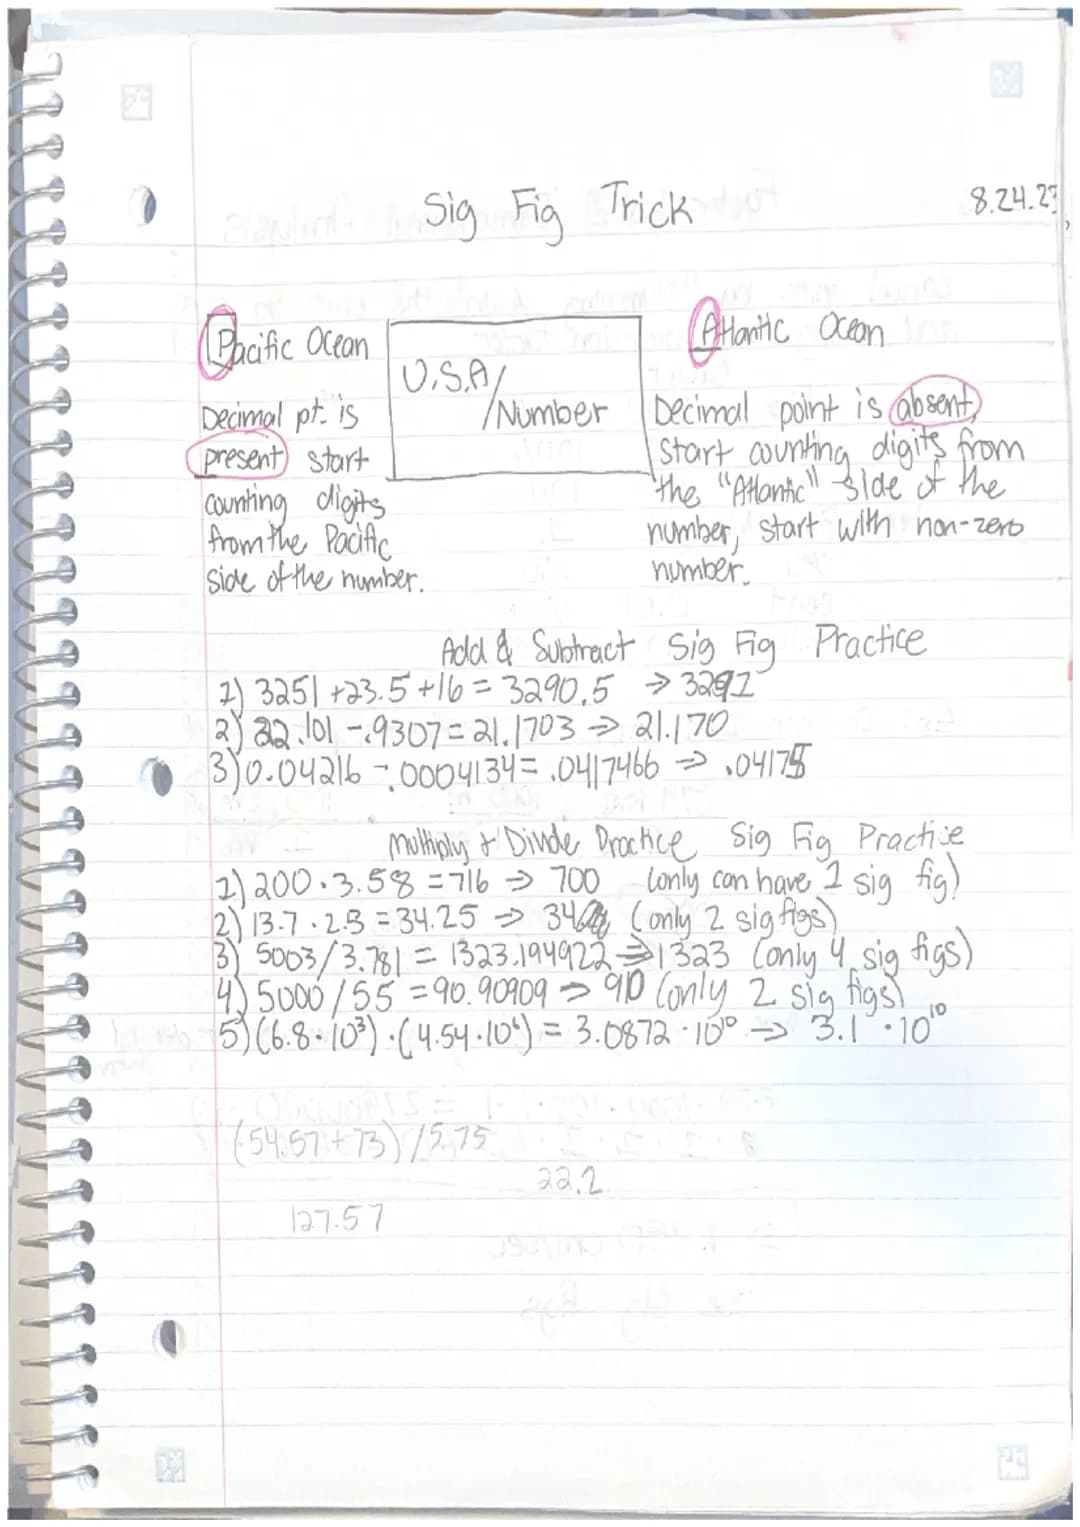 Sig Fig Trick
8.24.23
Pacific Ocean
Decimal pt. is
present start
counting digits
from the Pacific
side of the number.
U.S.A/
Number
Atlantic Ocean
Decimal point is absent,
start counting digits from
the "Atlantic" side of the
number, start with non-zero
number.
Add & Subtract Sig Fig Practice
1) 3251 +23.5 +16 = 3290.5 → 3291
2) 22.101 - .9307 = 21.1703 → 21.170
3) 0.04216 - .0004134 = .0417466 → .04175
Multiply + Divide Practice Sig Fig Practice
1) 200 · 3.58 = 716 → 700 (only can have 1 sig fig)
2) 13.7 · 2.5 = 34.25 → 34 (only 2 sig figs)
3) 5003/3.781 = 1323.194922 → 1323 (only 4 sig figs)
4) 5000/55 = 90.90909 → 90 (only 2 sig figs)
5) (6.8·10³) · (4.54·10⁶) = 3.0872 · 10¹⁰ → 3.1 · 10¹⁰
(54.57 + 73) / 5.75
22.2
127.57